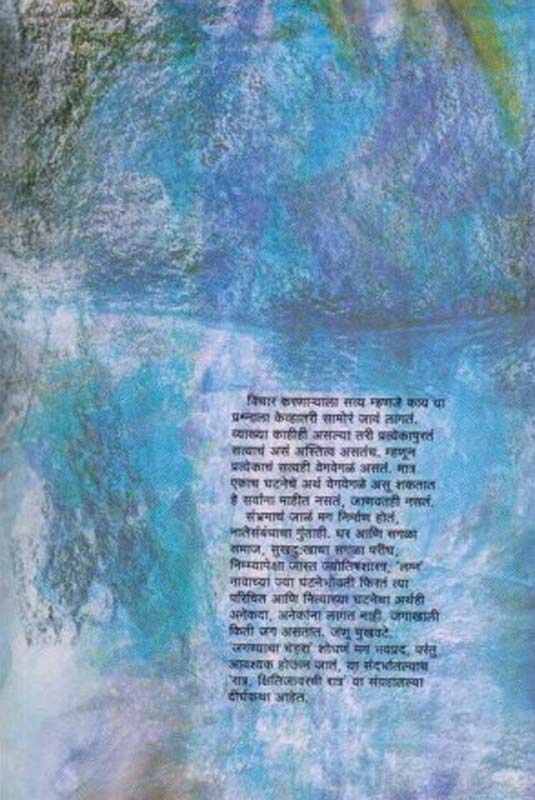 विचार करणाऱ्याला सत्य म्हणजे काय या
प्रश्नाला केव्हातरी सामोरं जावं लागतं.
व्याख्या काहीही असल्या तरी प्रत्येकापुरतं
सत्याचं असं अस्तित्व असतंच. म्हणून
प्रत्येकाचं सत्यही वेगवेगळं असतं. मात्र
एकाच घटनेचे अर्थ वेगवेगळे असू शकतात
हे सर्वांना माहीत नसतं, जाणवतही नसतं.
संभ्रमाचं जाळं मग निर्माण होतं,
नातेसंबंधाचा गुंताही. घर आणि सगळा
समाज, सुखदुःखाचा सगळा परीघ,
निम्म्यापेक्षा जास्त ज्योतिषशास्त्र, 'लग्न'
नावाच्या ज्या घटनेभोवती फिरतं त्या
परिचित आणि नित्याच्या घटनेचा अर्थही
अनेकदा, अनेकांना लागत नाही. जगाखाली
किती जग असतात. जणू मुखवटे.
'जगण्याचा चेहरा' शोधणं मग भयप्रद, परंतु
आवश्यक होऊन जातं, या संदर्भातल्याच
'रात्र, क्षितिजावरची रात्र' या संग्रहातल्या
दीर्घकथा आहेत.